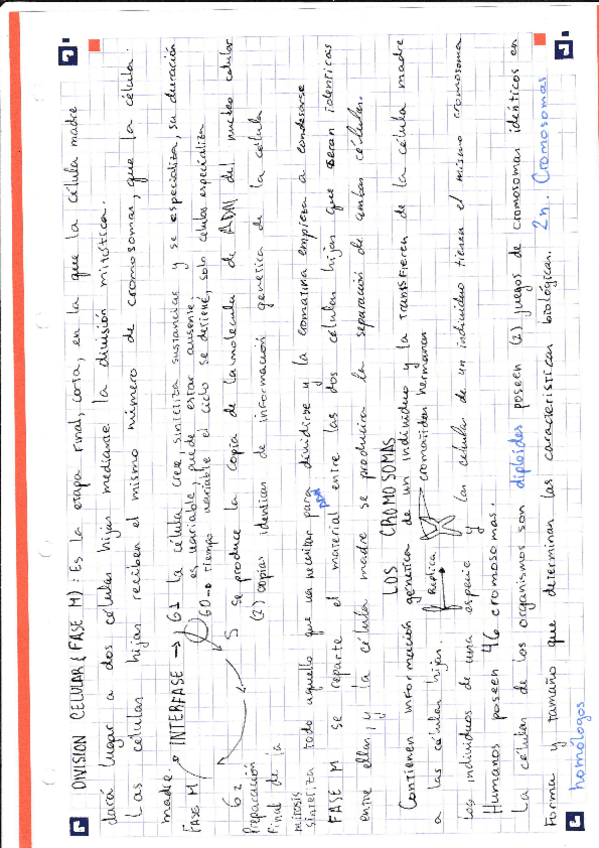 DIVISION CELULAR (FASE M): Es la etapa final, corta, en la que la célula madre
dará lugar a dos células hijas mediante la división mitótica.
Las células hijas reciben el mismo número de cromosomas, que la célula
madre.
FASE M INTERFASE → G1 La célula cree, sintetiza sustancias y se especializa, su duración
es variable, puede estar ausente.
G0 → tiempo variable el ciclo se detiene, solo celulas especializa
S se produce la copia de la molecula de ADN del nucleo celular
(2) copias identicas de información genetica de la celula
G2
Preparación
Final de la
mitosis
Sintetiza todo aquello que va necesitar para dividirse y la cromatina empieza a condesarse
FASE M se reparte el material entre las dos células hijas que seran identicas
ADN
entre ellas, y la célula madre se producira la separación de ambas células.
LOS CROMOSOMAS
Contienen información genética de un individuo y la transfieren de la célula madre
a las células hijas. Replica cromatidas hermanas
Los individuos de una especie y las celulas de un individuo tienen el mismo cromosoma
Humanos poseen 46 cromosomas.
La celulas de los organismos son diploides poseen (2) juegos de cromosomas idénticos en
Forma y tamaño que determinan las caracteristicas biológicas. 2n. Cromosomas
homólogos